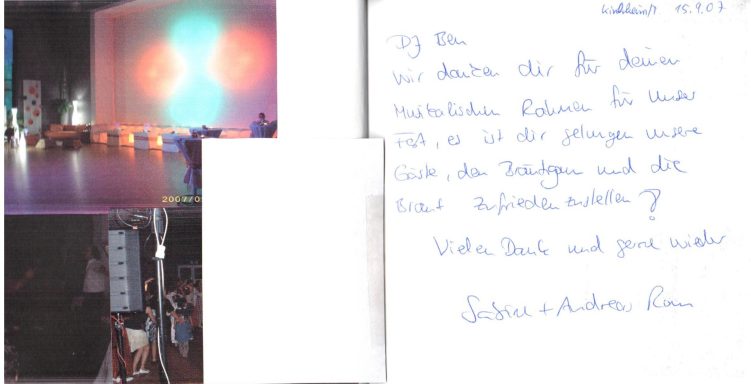 2007/0
Kirchheim/T. 15.9.07
DJ Ben
Wir danken dir für deinen
Musikalischen Rahmen für unser
Fest, es ist dir gelungen unsere
Gäste, den Bräutigam und die
Braut zufriedenzustellen!
Vielen Dank und gerne wieder
Sabine + Andreas